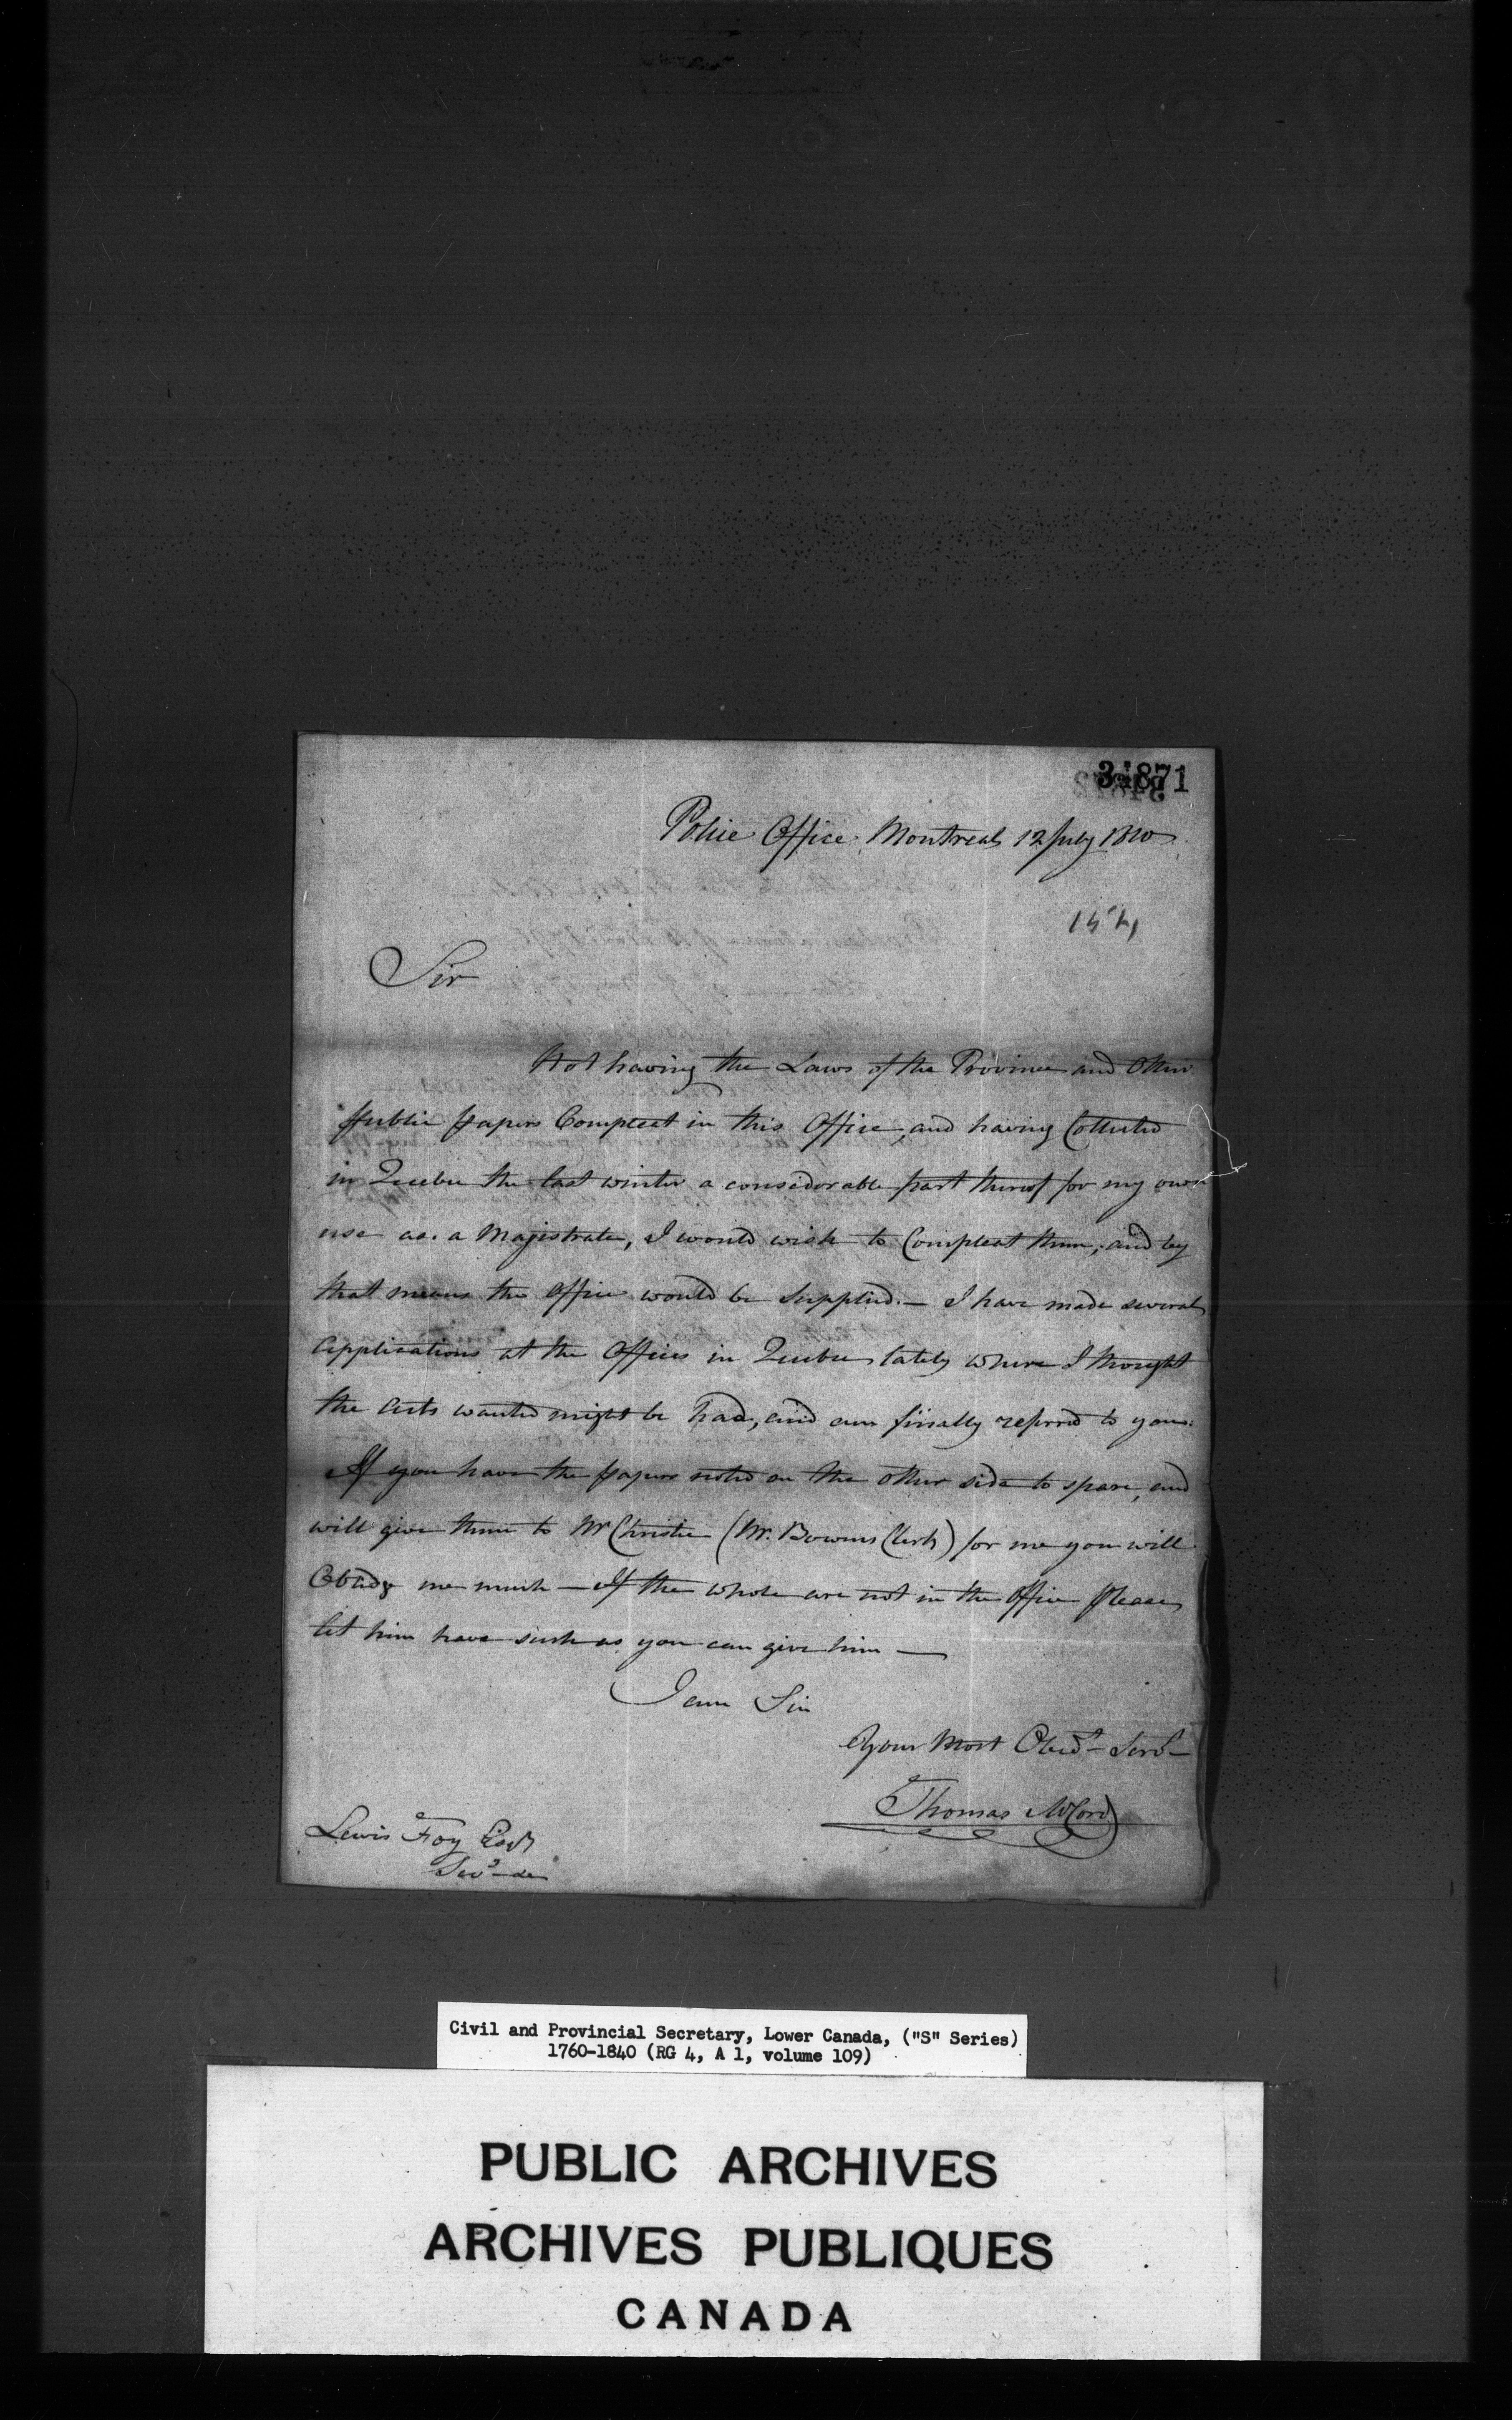 34871
Police Office Montreal 12 July 1810
Sir
Not having the Laws of the Province and Other
public papers Compleat in this Office, and having Collected
in Quebec the last winter a considerable part thereof for my own
use as a Magistrate, I would wish to Compleat them, and by
that means the Office would be Supplied. — I have made several
applications at the Offices in Quebec lately where I thought
the Acts wanted might be had, and am finally referred to you.
If you have the papers noted on the other side to spare, and
will give them to Mr Christie (Mr. Bowens Clerk) for me you will
Oblidge me much — If the whole are not in the Office please
let him have such as you can give him —
I am Sir
Your Most Obedt Servt
Thomas McCord
Lewis Foy Esqr
Civil and Provincial Secretary, Lower Canada, ("S" Series)
1760-1840 (RG 4, A 1, volume 109)
PUBLIC ARCHIVES
ARCHIVES PUBLIQUES
CANADA